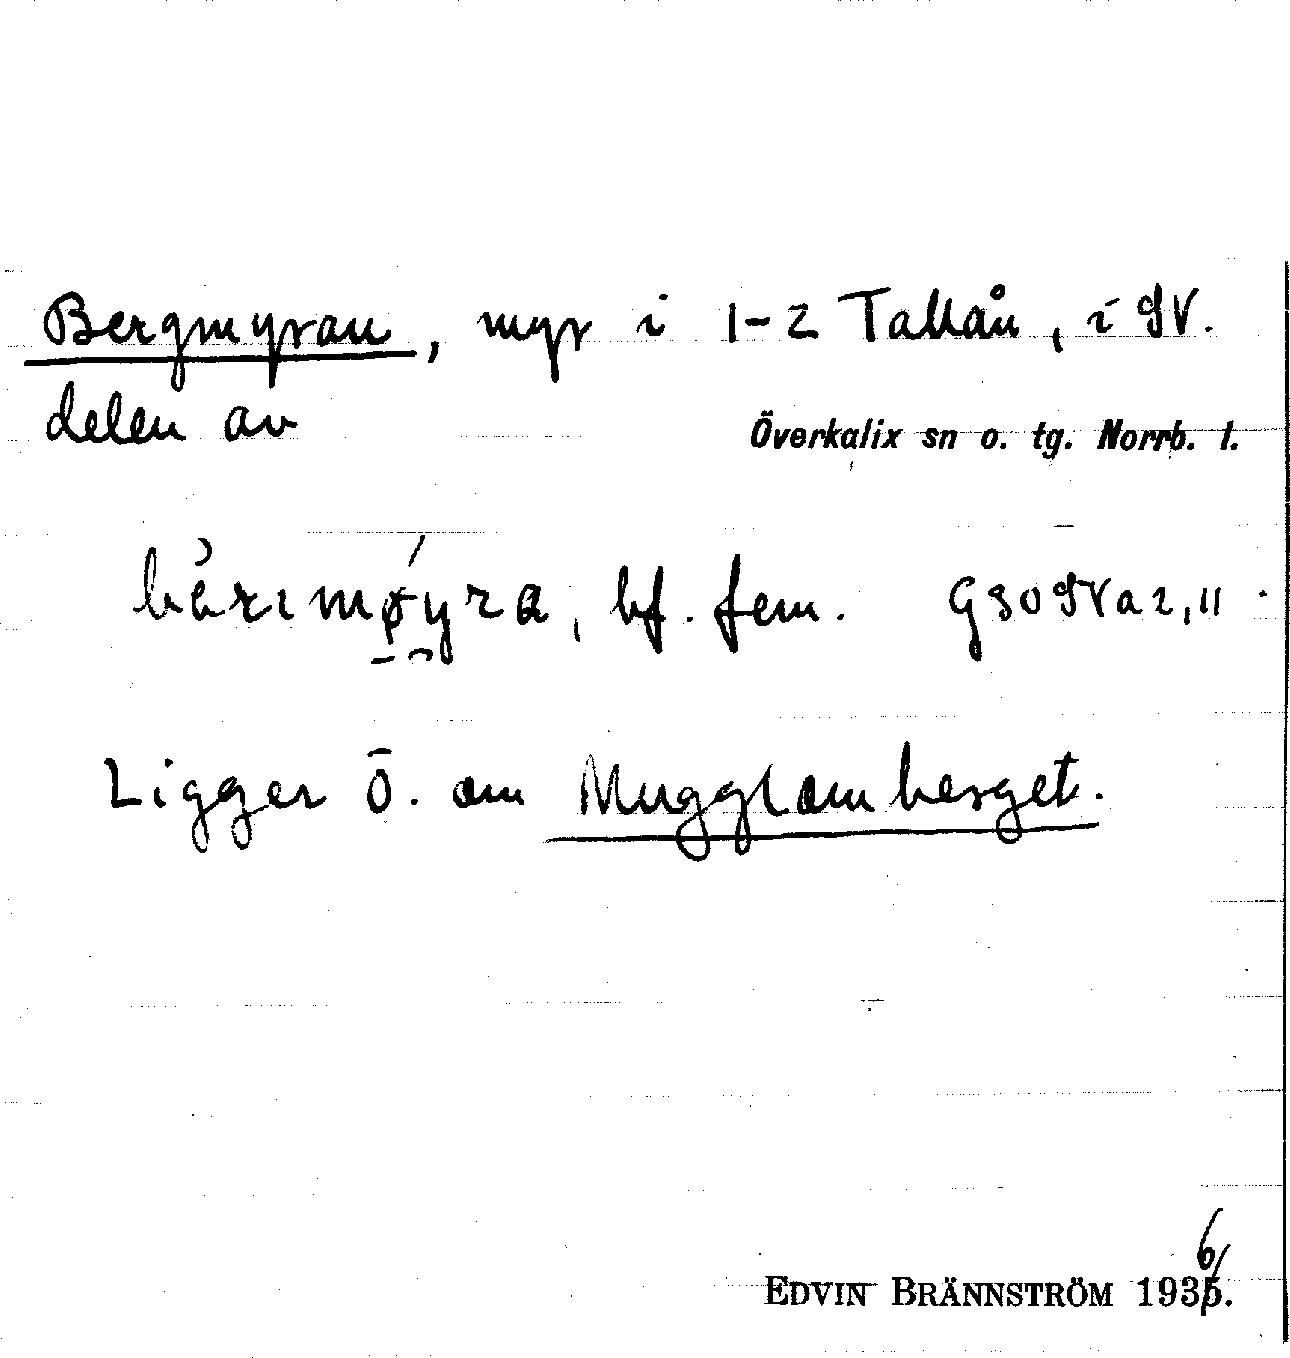 Bergmyran, myr i 1-2 Tallån, i SV.
delen av
Överkalix sn o. tg. Norrb. l.
bf. fem. G30SVa2,11.
Ligger Ö. om Mugglomberget.
EDVIN BRÄNNSTRÖM 1936.